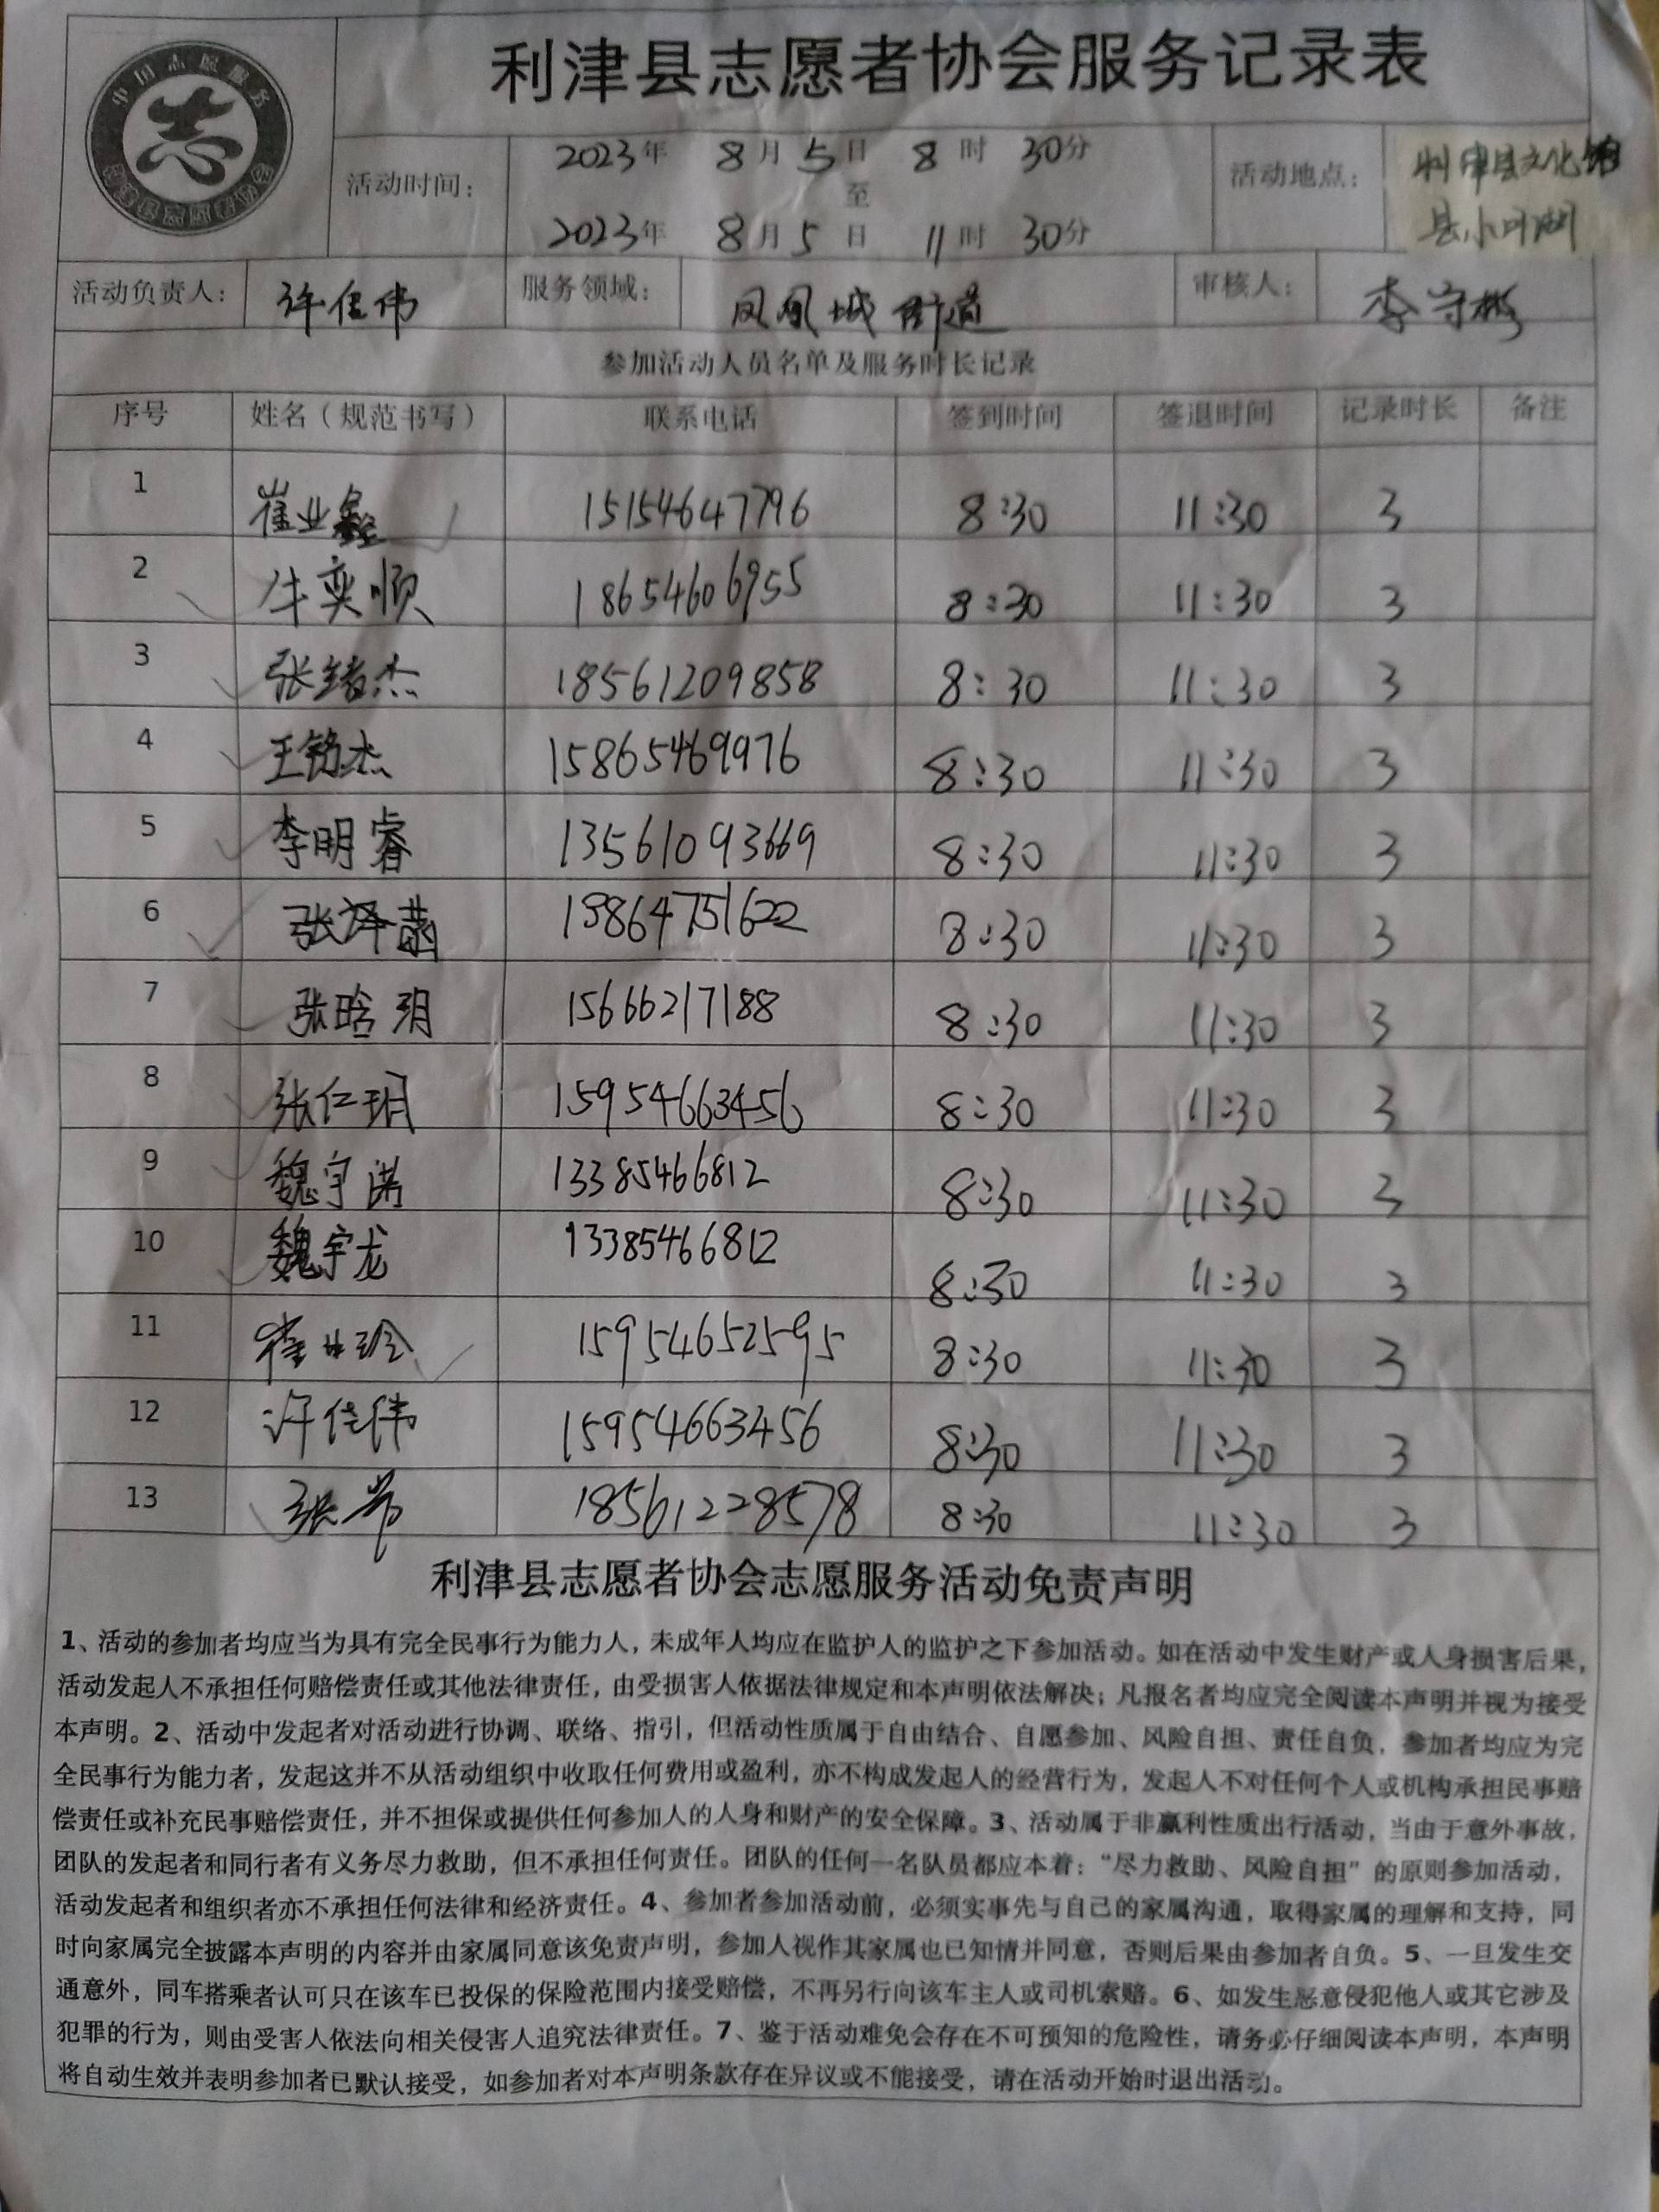 利津县志愿者协会服务记录表
中国志愿服务
志
活动时间：
2023年 8月5日 8时 30分
至
2023年 8月5日 11时 30分
活动地点：
利津县文化馆
活动负责人：许佳伟 服务领域：凤凰城街道 审核人：李守彬
参加活动人员名单及服务时长记录
序号 姓名（规范书写） 联系电话 签到时间 签退时间 记录时长 备注
1 崔业鑫 15154647796 8:30 11:30 3
2 牛奕顺 18654606955 8:30 11:30 3
3 张绪杰 18561209858 8:30 11:30 3
4 王铭杰 15865469976 8:30 11:30 3
5 李明睿 13561093669 8:30 11:30 3
6 张泽菡 15864751622 8:30 11:30 3
7 张晗玥 15666217188 8:30 11:30 3
8 张仁玥 15954663456 8:30 11:30 3
9 魏宇诺 13385466812 8:30 11:30 3
10 魏宇龙 13385466812 8:30 11:30 3
11 崔业玲 15954652595 8:30 11:30 3
12 许佳伟 15954663456 8:30 11:30 3
13 张 18561228578 8:30 11:30 3
利津县志愿者协会志愿服务活动免责声明
1、活动的参加者均应当为具有完全民事行为能力人，未成年人均应在监护人的监护之下参加活动。如在活动中发生财产或人身损害后果，
活动发起人不承担任何赔偿责任或其他法律责任，由受损害人依据法律规定和本声明依法解决；凡报名者均应完全阅读本声明并视为接受
本声明。2、活动中发起者对活动进行协调、联络、指引，但活动性质属于自由结合、自愿参加、风险自担、责任自负，参加者均应为完
全民事行为能力者，发起这并不从活动组织中收取任何费用或盈利，亦不构成发起人的经营行为，发起人不对任何个人或机构承担民事赔
偿责任或补充民事赔偿责任，并不担保或提供任何参加人的人身和财产的安全保障。3、活动属于非赢利性质出行活动，当由于意外事故，
团队的发起者和同行者有义务尽力救助，但不承担任何责任。团队的任何一名队员都应本着：“尽力救助、风险自担”的原则参加活动，
活动发起者和组织者亦不承担任何法律和经济责任。4、参加者参加活动前，必须实事先与自己的家属沟通，取得家属的理解和支持，同
时向家属完全披露本声明的内容并由家属同意该免责声明，参加人视作其家属也已知情并同意，否则后果由参加者自负。5、一旦发生交
通意外，同车搭乘者认可只在该车已投保的保险范围内接受赔偿，不再另行向该车主人或司机索赔。6、如发生恶意侵犯他人或其它涉及
犯罪的行为，则由受害人依法向相关侵害人追究法律责任。7、鉴于活动难免会存在不可预知的危险性，请务必仔细阅读本声明，本声明
将自动生效并表明参加者已默认接受，如参加者对本声明条款存在异议或不能接受，请在活动开始时退出活动。